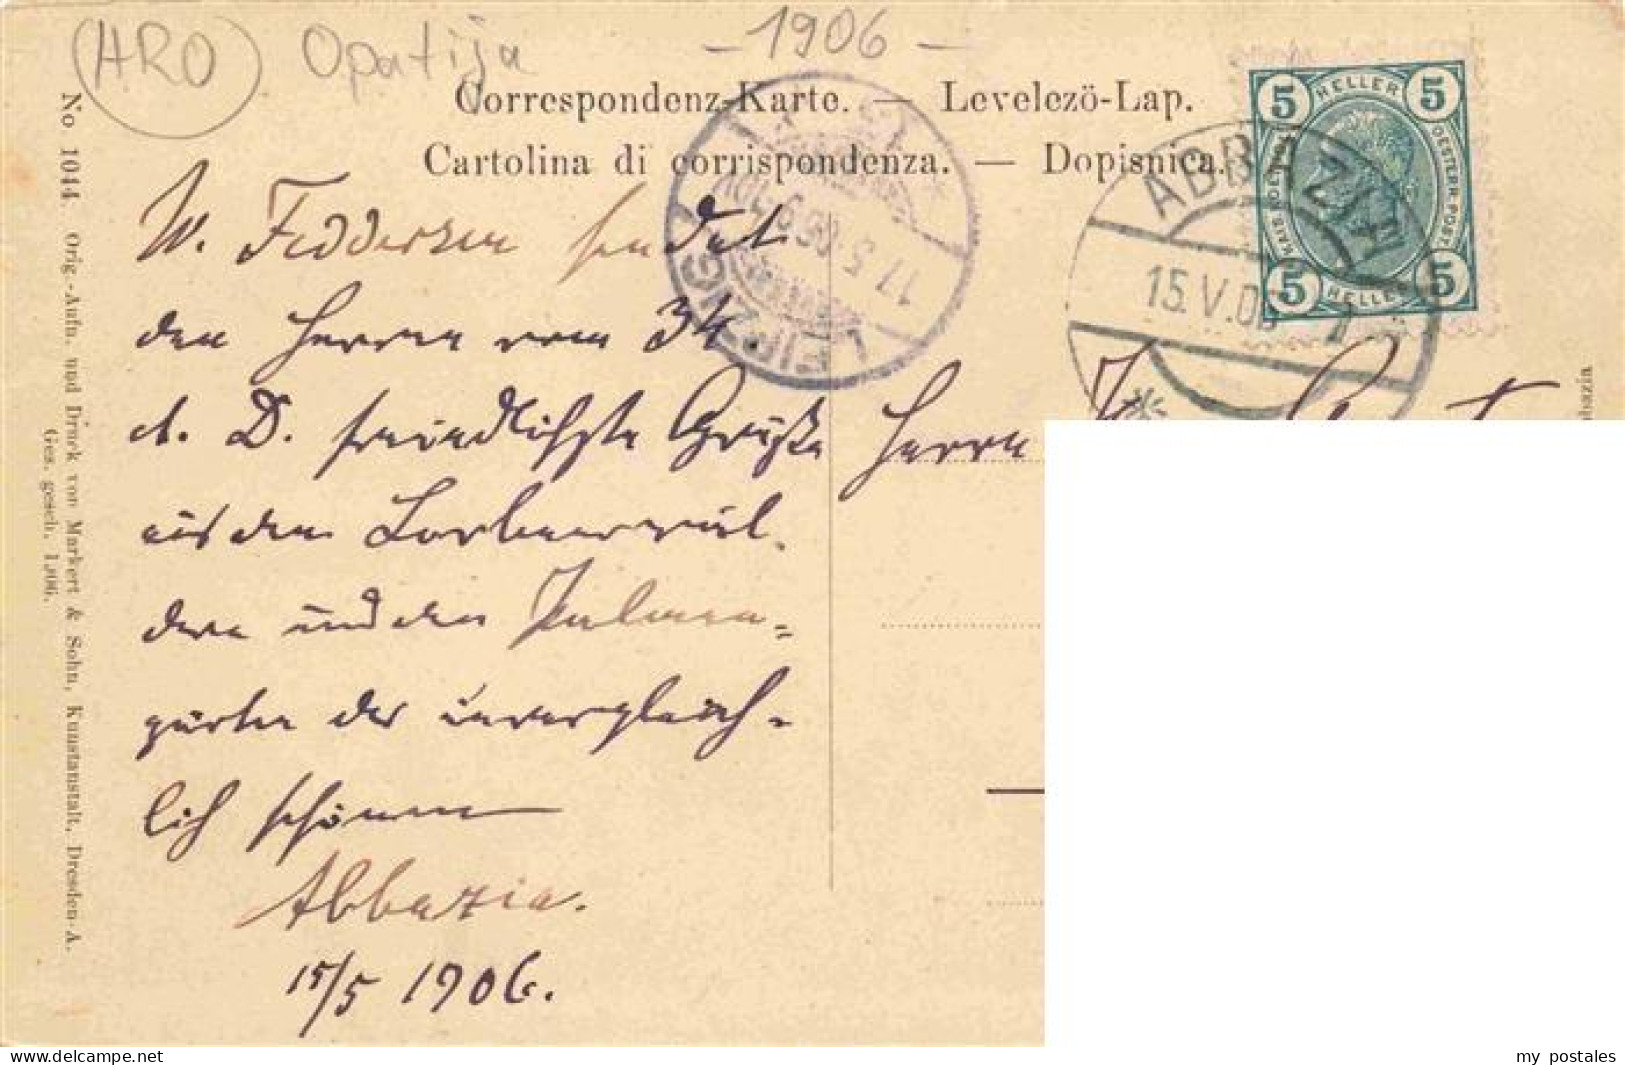 (HRO) Opatija - 1906 -
Correspondenz-Karte. — Levelezö-Lap.
Cartolina di corrispondenza. — Dopisnica.
5 HELLER 5
KAIS. KÖN. OESTERR. POST.
5 HELLER 5
ABBAZIA
15.V.06
1
LEIPZIG
17.5.06.9-10V.
W. Feddersen sendet
den Herren vom 34.
d. D. freundlichste Grüße
aus den Lorbeerwäl-
dern und den Palmen-
gärten des unvergleich-
lich schönen
Abbazia.
15/5 1906.
Herrn
No 1044 Orig.-Aufn. und Druck von Markert & Sohn, Kunstanstalt, Dresden-A.
Ges. gesch. 1906.
bazia
my postales
www.delcampe.net